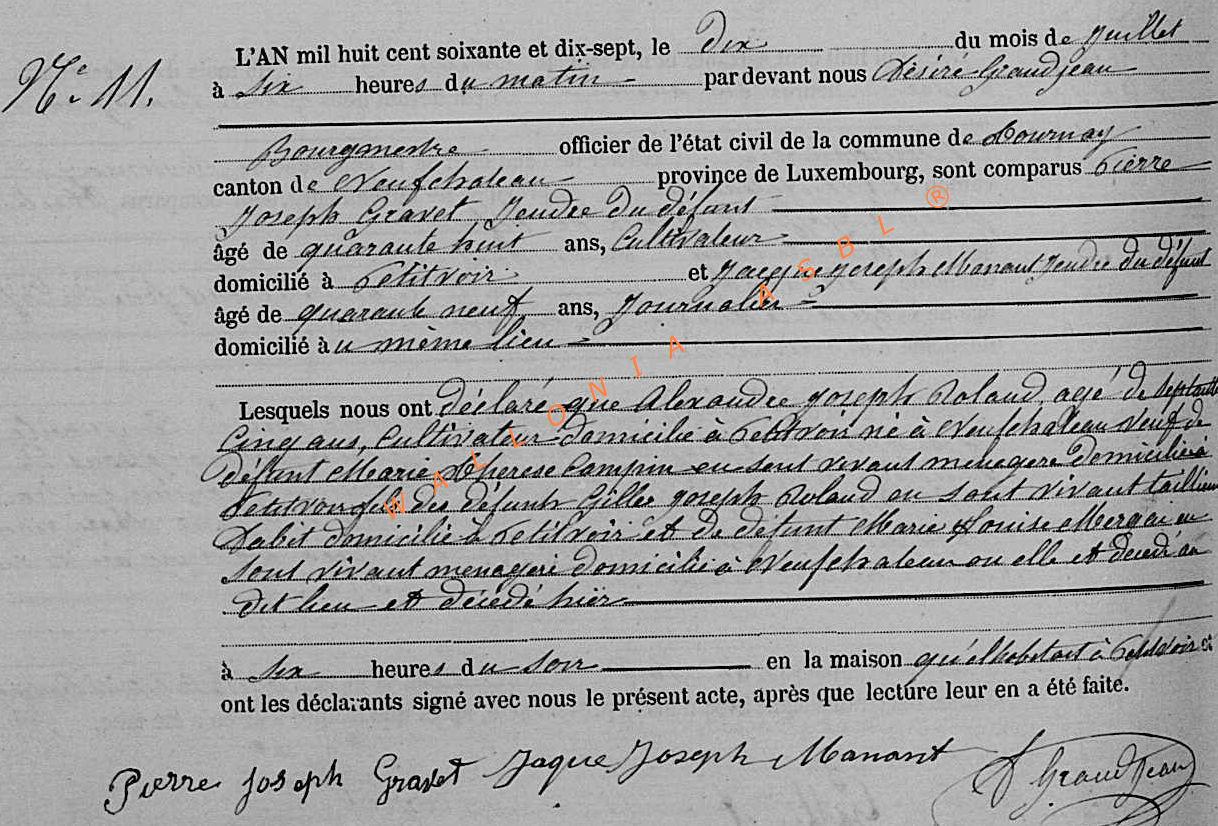 N° 11.
L'AN mil huit cent soixante et dix-sept, le dix du mois de Juillet
à six heures du matin par devant nous Désiré Grandjean
Bourgmestre officier de l'état civil de la commune de Tournay
canton de Neufchateau province de Luxembourg, sont comparus Pierre
Joseph Gravet Jendre du défunt
âgé de quarante huit ans, Cultivateur
domicilié à Petitvoir et Jacque Joseph Manant Jendre du défunt
âgé de quarante neuf ans, Journalier
domicilié à u même lieu
Lesquels nous ont déclaré que Alexandre Joseph Roland, agé de septante
Cinq ans, Cultivateur domicilié à Petitvoir né à Neufchateau Veuf de
défunt Marie Therese Campin en sont vivant menagere domicilié à
Petitvoir fils des défunts Gilles Joseph Roland en sont vivant taillieur
d'abit domicilié à Petitvoir et de défunt Marie Louise en
sont vivant menagere domicilié à Neufchateau ou elle et décédé au
dit lieu et décédé hier
à six heures du soir en la maison qu'el habitait à Petitvoir et
ont les déclarants signé avec nous le présent acte, après que lecture leur en a été faite.
Pierre Joseph Gravet Jaque Joseph Manant D Grandjean
WALLONIA ASBL ®